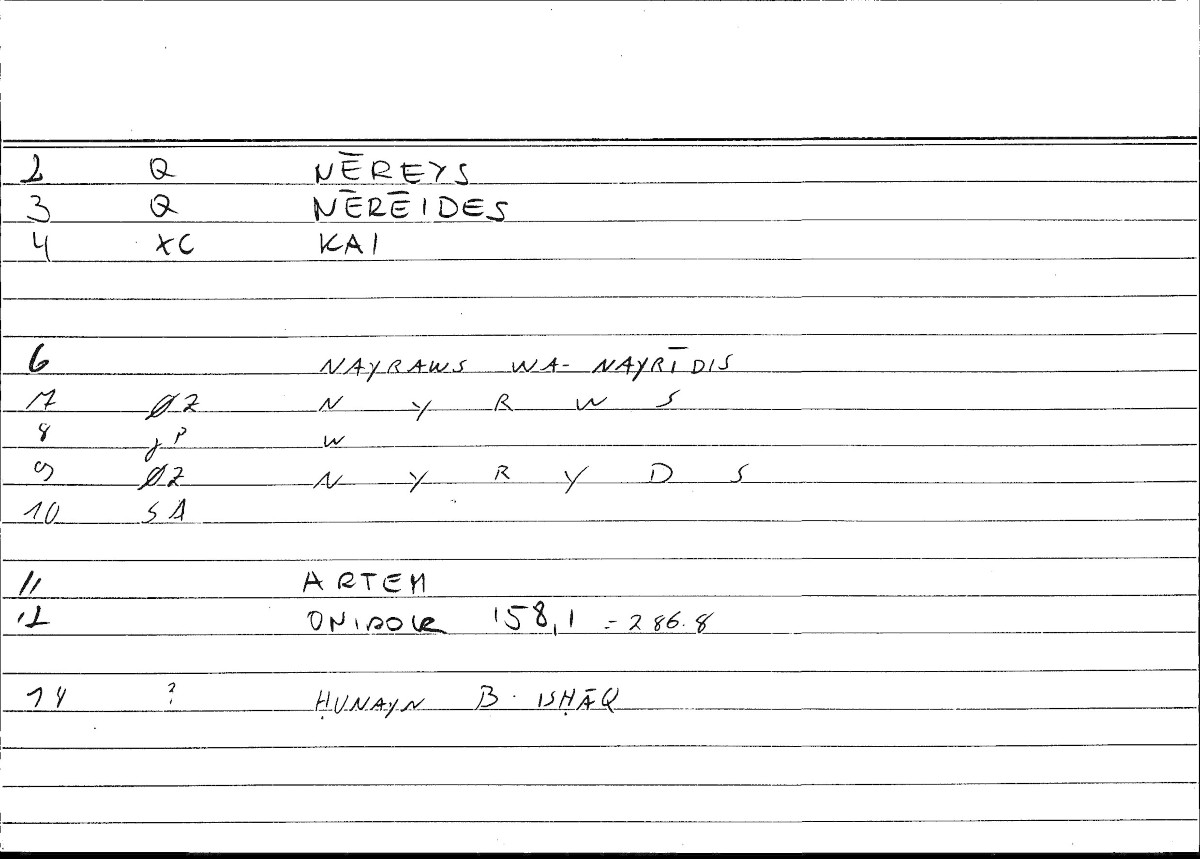 2 Q NĒREYS
3 Q NĒRĒIDES
4 XC KAI
6 NAYRAWS WA- NAYRĪDIS
7 ØZ N Y R W S
8 gP W
9 ØZ N Y R Y D S
10 SA
11 ARTEM
12 ONIROCR 158,1 = 286.8
14 ? ḤUNAYN B. ISḤĀQ